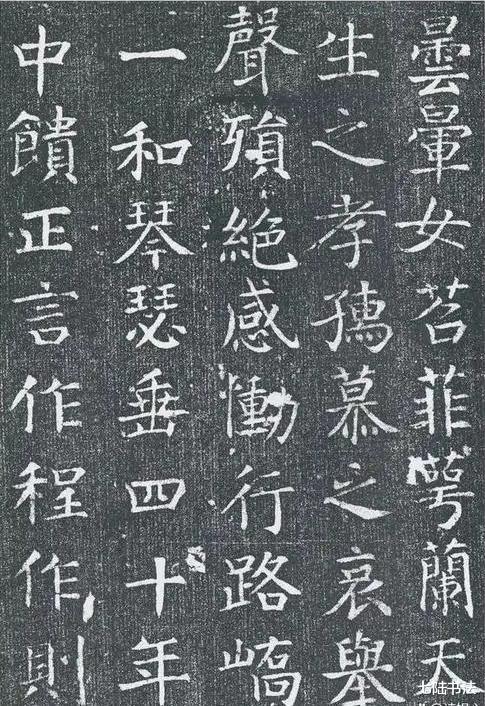 曇暈女苕菲萼蘭天
生之孝孺慕之哀舉
聲殞絶感慟行路嶠
一和琴瑟垂四十年
中饋正言作程作則
七陆书法